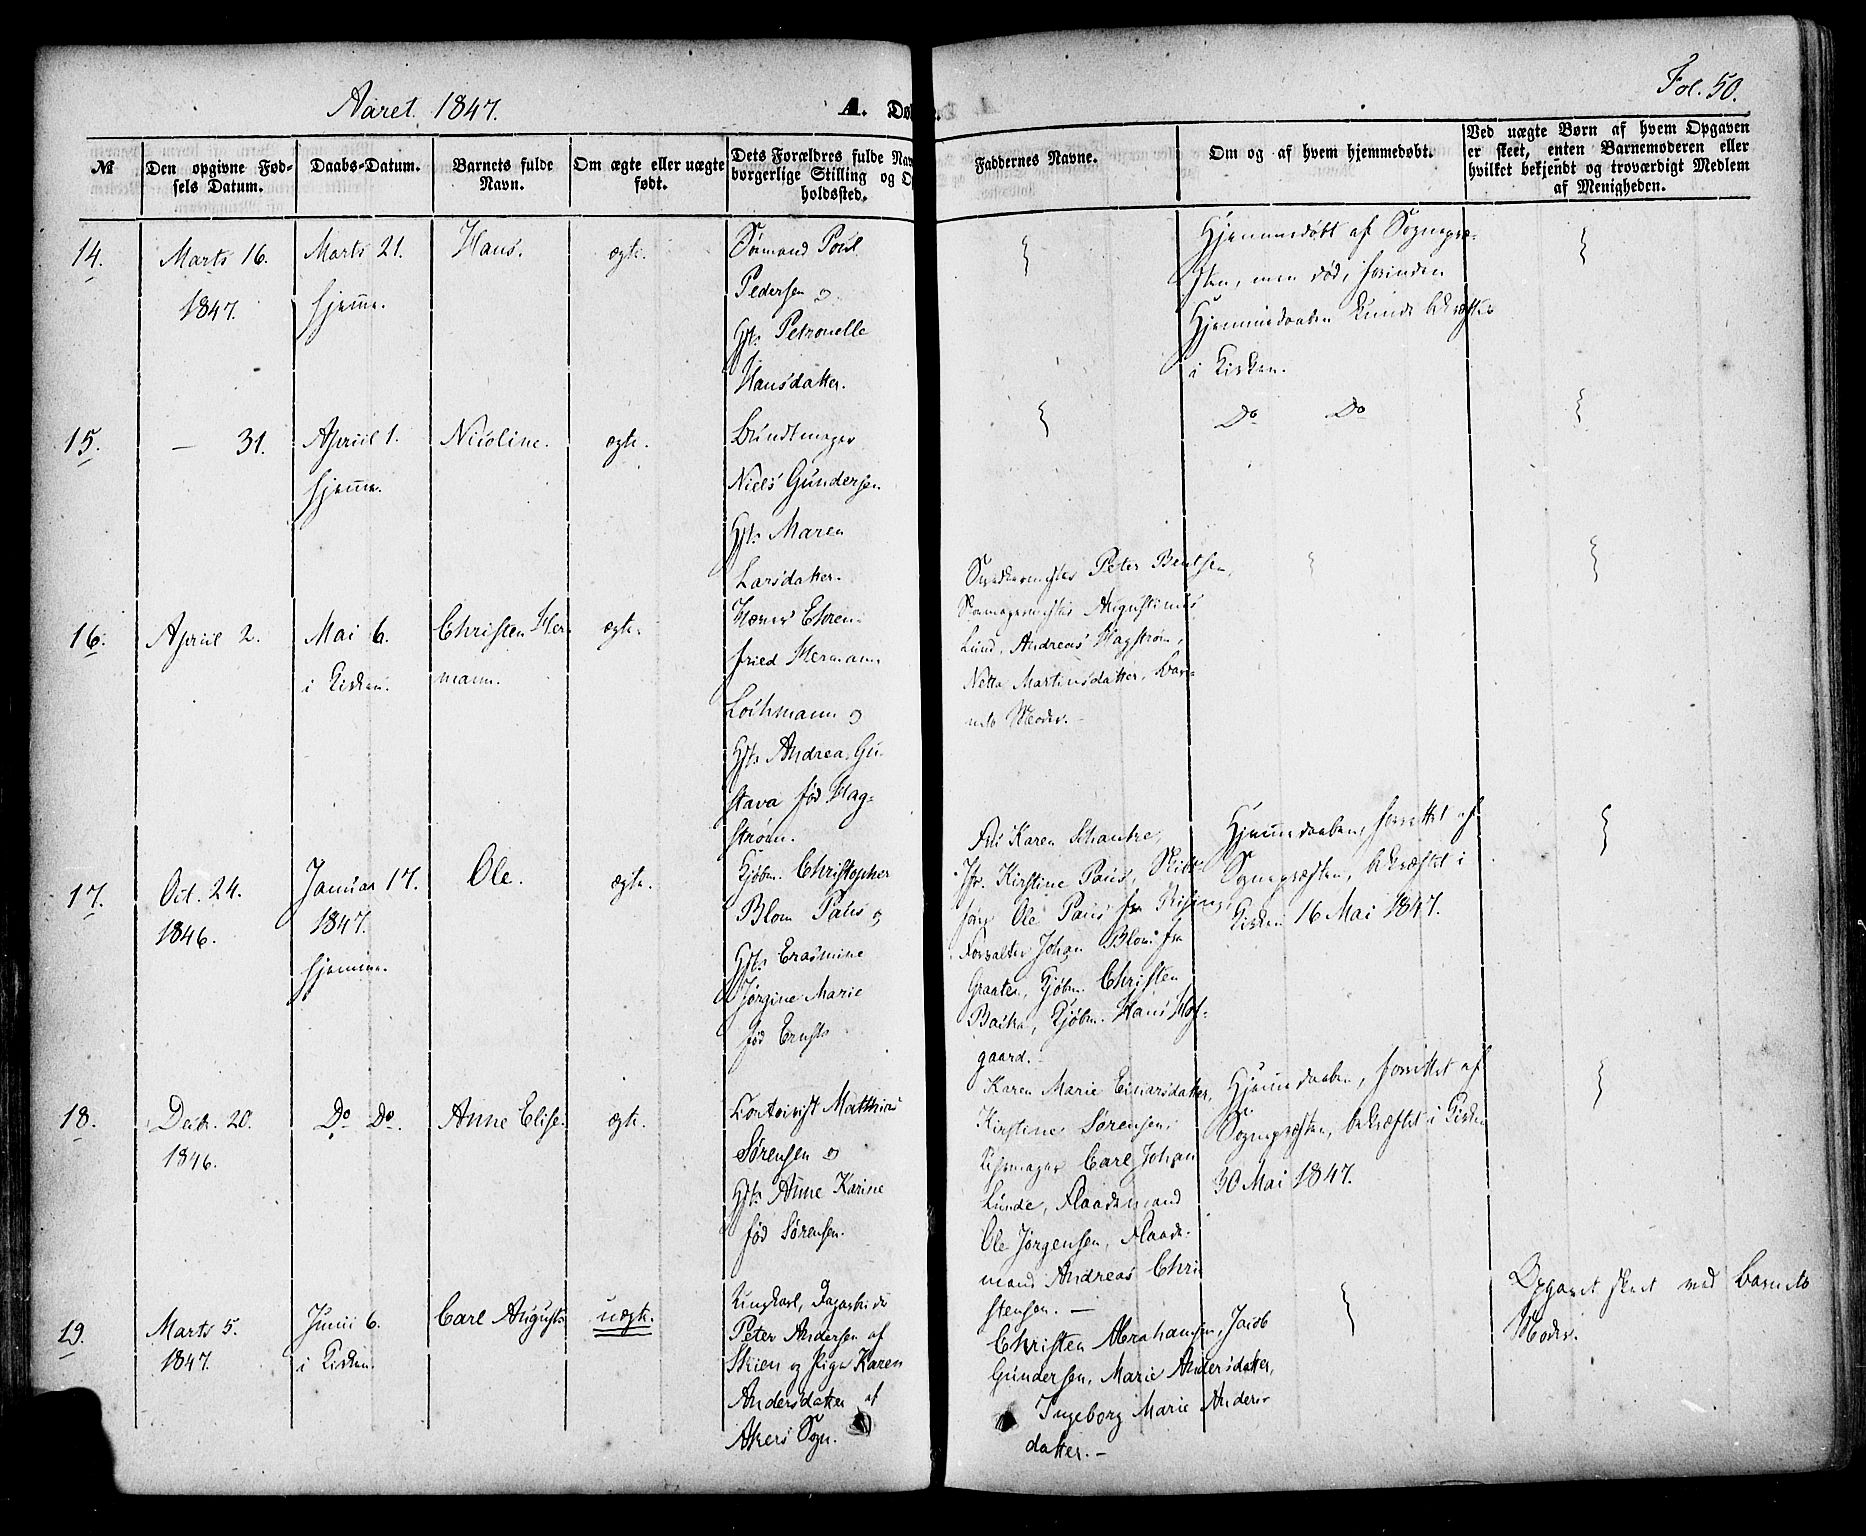 Aaret 1847.
A. Dø
Fol. 50.
№
Den opgivne Fød-
sels Datum.
Daabs-Datum.
Barnets fulde
Navn.
Om ægte eller uægte
født.
Dets Forældres fulde Nav
borgerlige Stilling og O
holdssted.
Faddernes Navne.
Om og af hvem hjemmedøbt.
Ved uægte Børn af hvem Opgaven
er skeet, enten Barnemoderen eller
hvilket bekjendt og troværdigt Medlem
af Menigheden.
14.
Marts 16.
1847.
Marts 21.
hjemme.
Hans.
ægte.
Sømand Poul
Pedersen og
Hst. Petronelle
Hansdatter.
Hjemmedøbt af Sognepræ-
sten, men død, forinden
Hjemmedaaben kunde bekræftes
i Kirken.
15.
— 31.
Apriil 1.
hjemme.
Nicoline.
ægte.
Bundtmager
Niels Gundersen
Hst. Maren
Larsdatter.
Do Do
16.
Apriil 2.
Mai 6.
i Kirken.
Christen Her-
mann.
ægte.
Ehren-
fried Hermann
Lochmann og
Hst. Andrea Gu-
stava fød Hag-
strøm.
Snedkermester Peter Bentsen,
Skomagermester Augustinus
Lund, Andreas Hagstrøm,
Netta Martinsdatter, Bar-
nets Moder. -
17.
Oct. 24.
1846.
Januar 17.
1847.
hjemme.
Ole.
ægte.
Kjøbm. Christopher
Blom Paus og
Hst. Erasmine
Jørgine Marie
fød Ernst
Karen Schanke,
Jfr. Kirstine Paus, Skibs-
fører Ole Paus fra Rising,
Forvalter Johan Blom fra
Graaten, Kjøbm. Christen
Backa, Kjøbm. Hans Hof-
gaard. -
Hjemmedaaben, forrettet af
Sognepræsten, bekræftet i
Kirken 16 Mai 1847.
18.
Decbr. 20.
1846.
Do Do.
Anne Elise.
ægte.
Matthias
Sørensen og
Hst. Anne Karine
fød Sørensen.
Karen Marie Einarsdatter,
Kirstine Sørensen,
Carl Johan
Lunde, Flaademand
Ole Jørgensen, Flaade-
mand Andreas Chri-
stensen. -
Hjemmedaaben, forrettet af
Sognepræsten, bekræftet i Kirken
30 Mai 1847.
19.
Marts 5.
1847.
Junii 6.
i Kirken.
Carl August.
uægte.
Ungkarl, Dagarbeider
Peter Andersen af
Skien og Pige Karen
Andersdatter af
Akers Sogn.
Christen Abrahamsen, Jacob
Gundersen, Marie Andersdatter,
Ingeborg Marie Anders-
datter. -
Opgavet skeet ved Barnets
Moder.